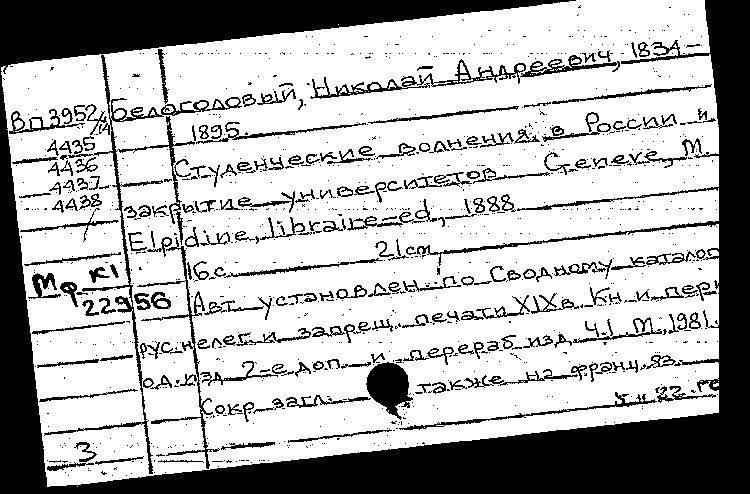 Вп3952/14 Белоголовый, Николай Андреевич, 1834–
4435 1895.
4436 Студенческие волнения в России и
4437
4438 закрытие университетов Geneve, M.
Elpidine, libraire-ed, 1888
16 с. 21 cm
Мф К1
22956 Авт установлен по Сводному каталог
рус. нелег и запрещ. печати XIX в. Кн и пери
од. изд 2-е доп. и перераб изд. Ч.1. М., 1981.
Сокр загл. также на франц яз.
3